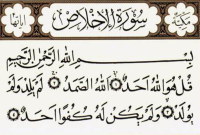 مكية سورة الإخلاص آياتها
بِسْمِ اللَّهِ الرَّحْمَنِ الرَّحِيمِ
قُلْ هُوَ اللَّهُ أَحَدٌ اللَّهُ الصَّمَدُ لَمْ يَلِدْ وَلَمْ
يُولَدْ وَلَمْ يَكُنْ لَهُ كُفُوًا أَحَدٌ